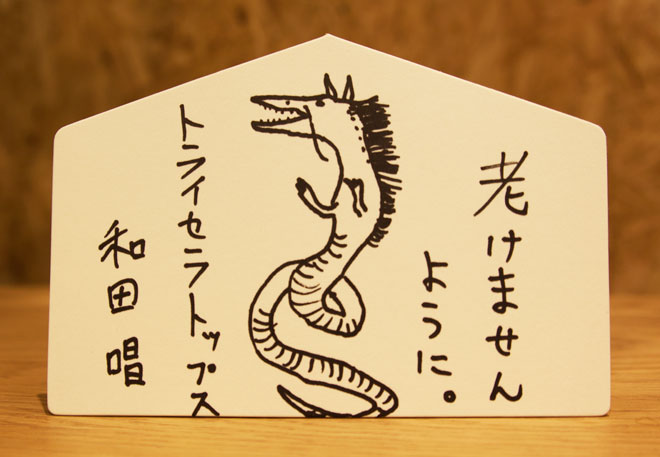 老けません
ように。
トライセラトップス
和田唱